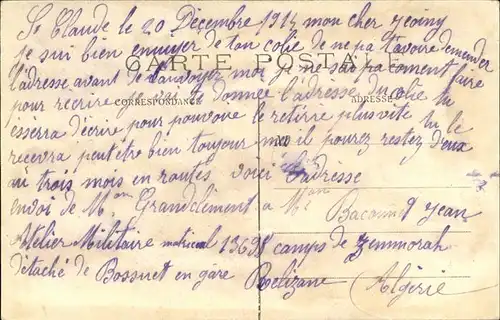 St Claude le 20 Décembre 1914 mon cher
je sui bien ennuyer de ton colie de ne pa t'avoire demender
CARTE POSTALE
l'adresse avant de l'anvoyez moi je ne sai pa coment faire
pour recrire je vai te donnée l'adresse du colie tu
CORRESPONDANCE ADRESSE
esserra d'écrire pour pouvoire le retirre plus vite tu le
recevra peut être bien toujour il pourez restez deux
au trois mois en routes voici l'adresse
envoi de Mon Grandclément a Mon Bacounet Jean
Atelier Militaire matricul 13698 camps de Zemmorah
détaché de Bossuet en gare Relizane (Algérie)